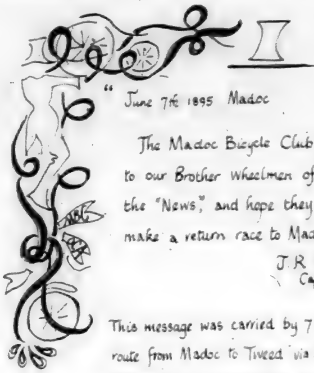 "June 7th 1895 Madoc
The Madoc Bicycle Club
to our Brother Wheelmen of
the "News," and hope they
make a return race to Mad
J.R
Ca
This message was carried by 7
route from Madoc to Tweed via